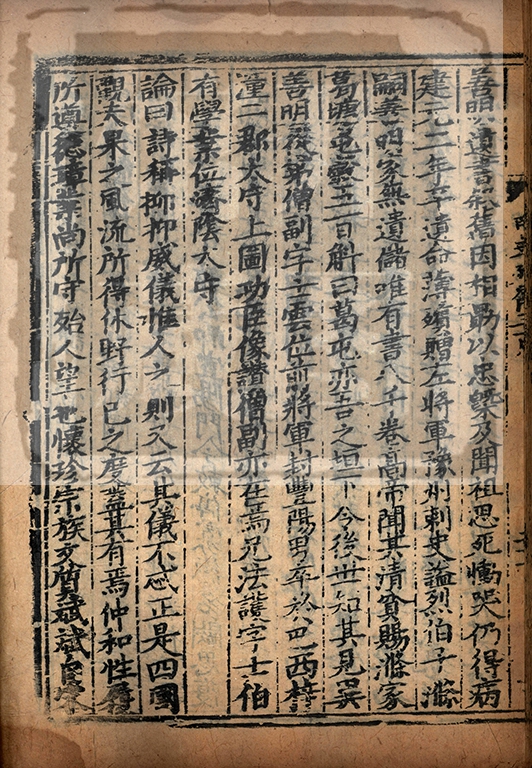 善明遺書敘舊因相勗以忠槩及聞祖思死慟哭仍得病
建元二年卒遺命薄殯贈左將軍豫州刺史謚烈伯子滌
嗣善明家無遺儲唯有書八千卷高帝聞其清貧賜滌家
葛塘屯穀五百斛曰葛屯亦吾之垣下令後世知其見異
善明從弟僧副字士雲位前將軍封豐陽男卒於巴西梓
潼二郡太守上圖功臣像讚僧副亦在焉兄法護字士伯
有學業位濟陰太守
論曰詩稱抑抑威儀惟人之則又云其儀不忒正是四國
觀夫杲之風流所得休野行己之度蓋其有焉仲和性履
所遵德璋業尚所守殆人望也懷珍宗族文質斌斌自宋